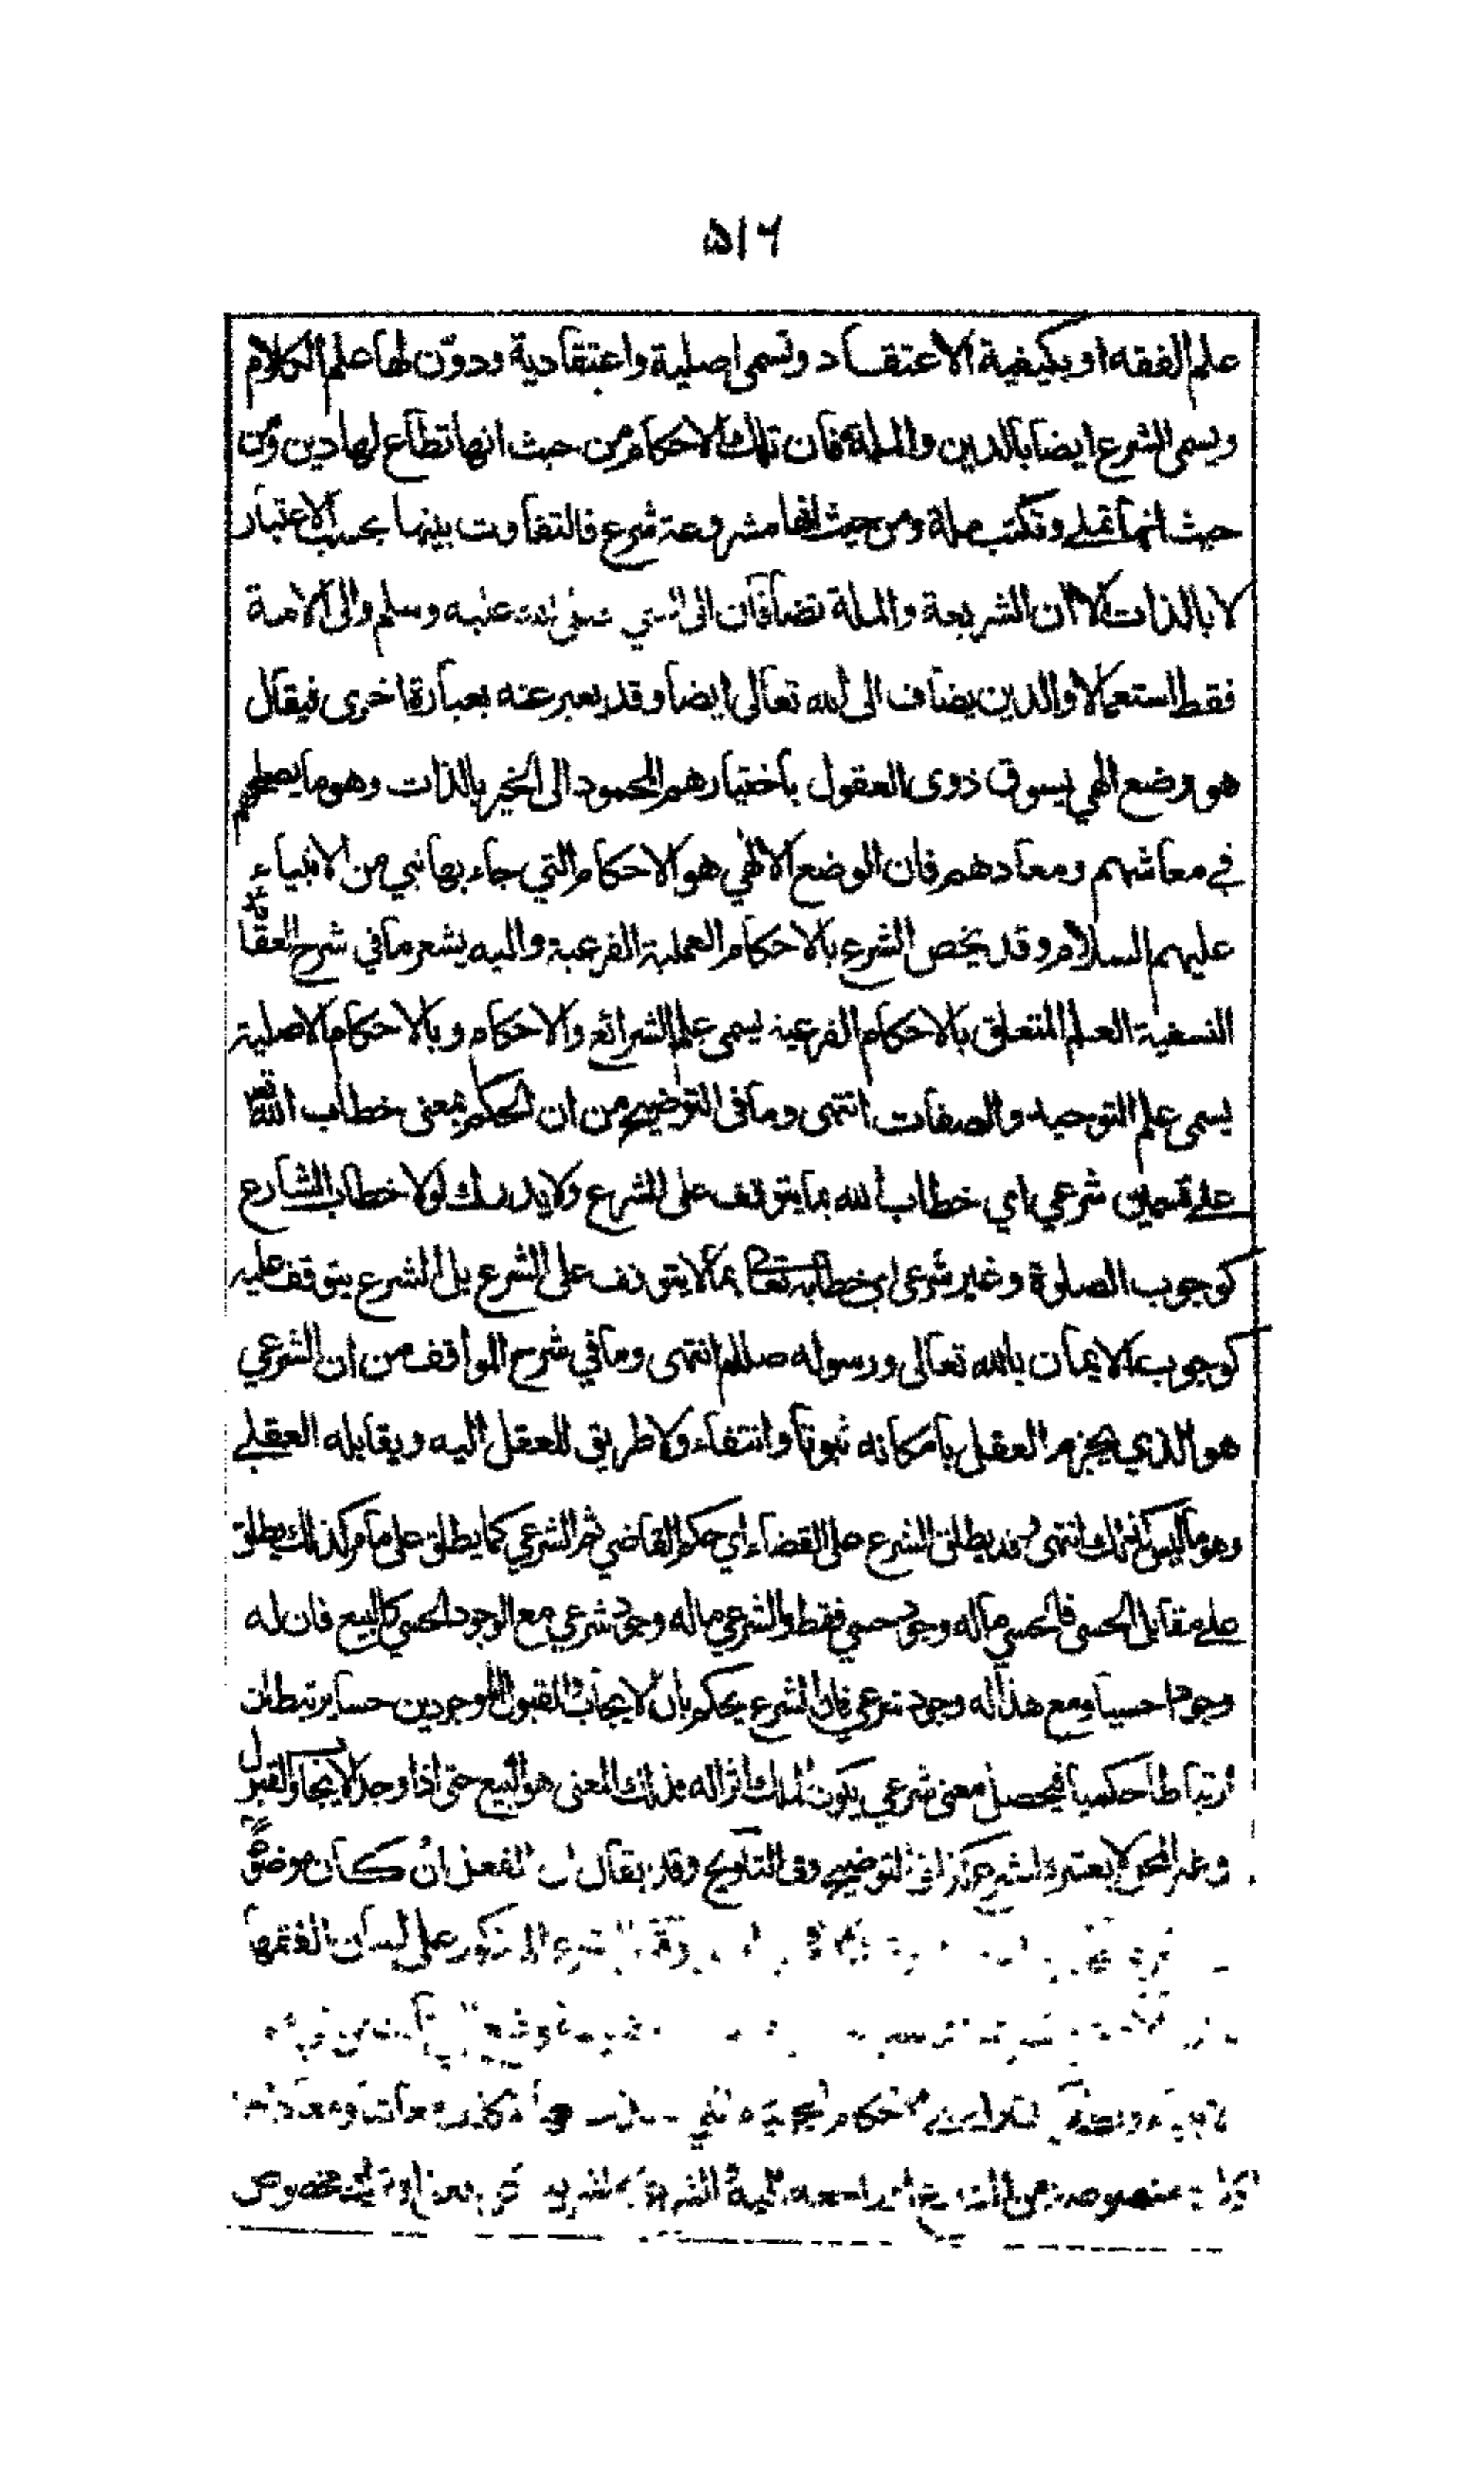 ۵۱۶
علم الفقه او بكيفية الاعتقاد وتسمى اصلية واعتقادية ودوّن لها علم الكلام
ويسمى الشرع ايضا بالدين والملة فان تلك الاحكام من حيث انها تطاع لها دين ومن
حيث انها تملى وتكتب ملة ومن حيث انها مشروعة شرع فالتفاوت بينها بحسب الاعتبار
لا بالذات الا ان الشريعة والملة تضافان الى النبي صلى الله عليه وسلم والى الامة
فقط استعمالا والدين يضاف الى الله تعالى ايضا وقد يعبر عنه بعبارة اخرى فيقال
هو وضع الهي يسوق ذوى العقول باختيارهم المحمود الى الخير بالذات وهو ما يصلحهم
في معاشهم ومعادهم فان الوضع الالهي هو الاحكام التي جاء بها نبي من الانبياء
عليهم السلام وقد يخص الشرع بالاحكام العملية الفرعية واليه يشعر ما في شرح العقائد
النسفية العلم المتعلق بالاحكام الفرعية يسمى علم الشرائع والاحكام وبالاحكام الاصلية
يسمى علم التوحيد والصفات انتهى وما فى التوضيح من ان الحكم بمعنى خطاب الله تعالى
على قسمين شرعي اي خطاب الله بما يتوقف على الشرع ولا يدرك لولا خطاب الشارع
كوجوب الصلوة وغير شرعى اي خطابه تعالى بما لا يتوقف على الشرع بل الشرع يتوقف عليه
كوجوب الايمان بالله تعالى ورسوله صللم انتهى وما في شرح المواقف من ان الشرعي
هو الذي يجزم العقل بامكانه ثبوتا وانتفاء ولا طريق للعقل اليه ويقابله العقلي
وهو ما ليس كذلك انتهى وقد يطلق الشرع على القضاء اي حكم القاضي ثم الشرعي كما يطلق على ما مر كذلك يطلق
على مقابل الحسى فالحسي ما له وجود حسي فقط والشرعي ما له وجود شرعي مع الوجود الحسي كالبيع فان له
وجودا حسيا ومع هذا له وجود شرعي فان الشرع يحكم بان الايجاب والقبول الموجودين حسا يرتبطان
ارتباطا حكميا فيحصل معنى شرعي يكون الملك اثرا له فذلك المعنى هو البيع حتى اذا وجد الايجاب والقبول
وغير المحل لا يعتبره الشرع كذا فى التوضيح وفى التلويح وقد يقال ان الفعل ان كان موضوعا
الشرع المذكور على لسان الفقهاء
منصوصة من الشارع
مخصوص